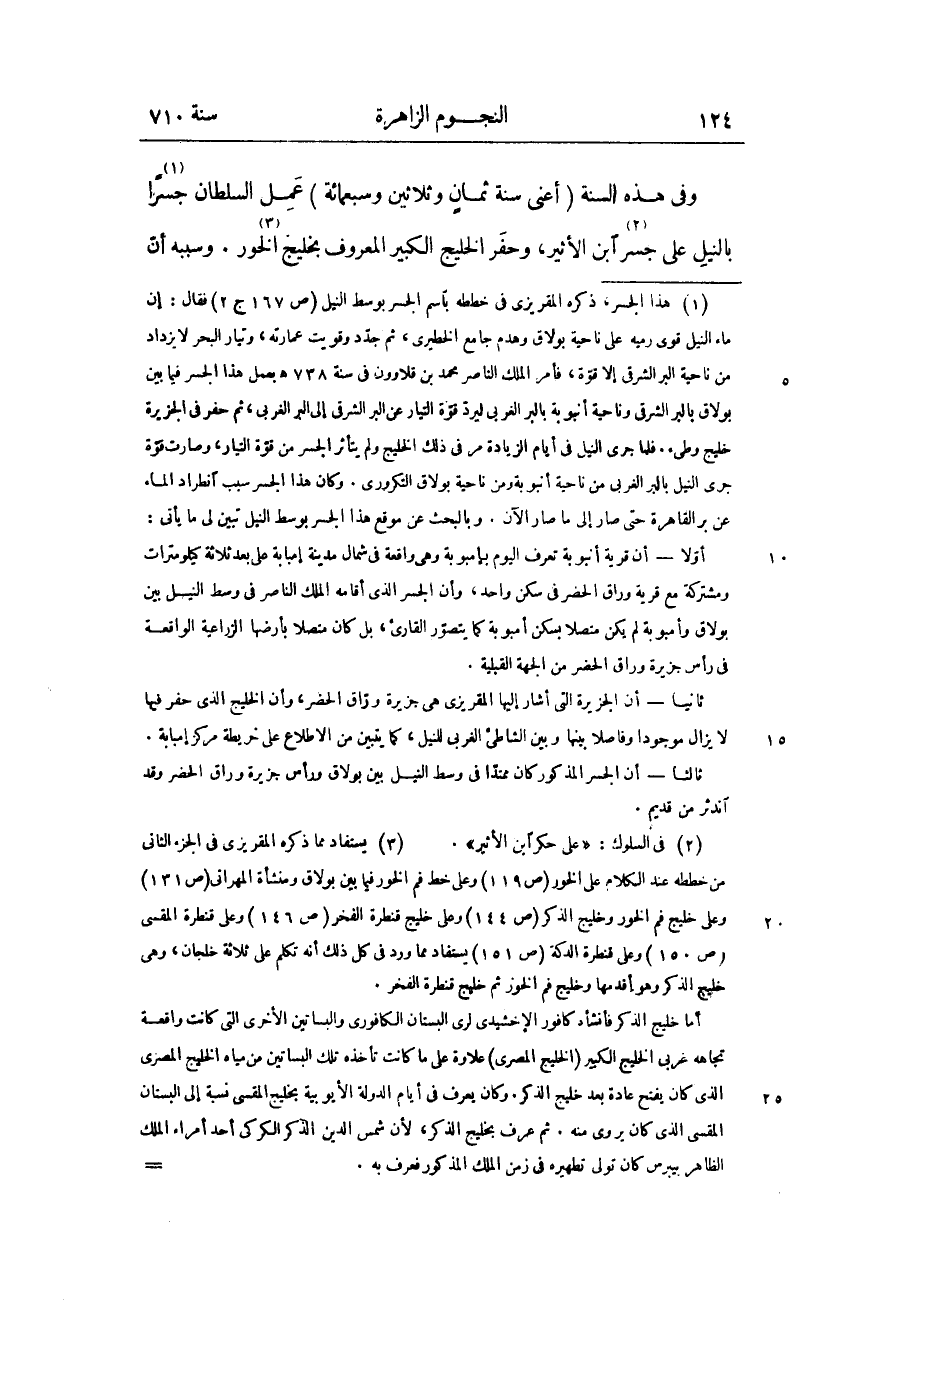 ١٢٤ النجـــوم الزاهرة سنة ٧١٠
وفى هـذه السنة (أعنى سنة ثمـانٍ وثلاثين وسبعمائة) عَمِـل السلطان جسرًا (١)
بالنيل على جسر (٢) آبن الأثير، وحفَر الخليج الكبير المعروف بخليج (٣) الخور . وسببه أن
(١) هذا الجسر، ذكره المقريزى فى خططه بآسم الجسر بوسط النيل (ص ١٦٧ ج ٢) فقال : إن
ماء النيل قوى رميه على ناحية بولاق وهدم جامع الخطيرى ، ثم جدّد وقويت عمارته ، وتيار البحر لا يزداد
من ناحية البر الشرقى إلا قوّة ، فأمر الملك الناصر محمد بن قلاوون فى سنة ٧٣٨ ﻫ بعمل هذا الجسر فيما بين ٥
بولاق بالبر الشرقى وناحية أنبوبة بالبر الغربى ليردّ قوّة التيار عن البر الشرقى إلى البر الغربى ، ثم حفر فى الجزيرة
خليج وطىء . فلما جرى النيل فى أيام الزيادة مر فى ذلك الخليج ولم يتأثر الجسر من قوّة التيار، وصارت قوّة
جرى النيل بالبر الغربى من ناحية أنبوبة ومن ناحية بولاق التكرورى . وكان هذا الجسر سبب آنطراد المـاء
عن بر القاهرة حتى صار إلى ما صار الآن . وبالبحث عن موقع هذا الجسر بوسط النيل تبين لى ما يأتى :
أوّلا — أن قرية أنبوبة تعرف اليوم بإمبوبة وهى واقعة فى شمال مدينة إمبابة على بعد ثلاثة كيلومترات ١٠
ومشتركة مع قرية وراق الحضر فى سكن واحد ، وأن الجسر الذى أقامه الملك الناصر فى وسط النيــل بين
بولاق وأمبوبة لم يكن متصلا بسكن أمبوبة كما يتصوّر القارئ ، بل كان متصلا بأرضها الزراعية الواقعــة
فى رأس جزيرة وراق الحضر من الجهة القبلية .
ثانيـا — أن الجزيرة التى أشار إليها المقريزى هى جزيرة ورّاق الحضر، وأن الخليج الذى حفر فيها
لا يزال موجودا وفاصلا بينها وبين الشاطئ الغربى للنيل ، كما يتبين من الاطلاع على خريطة مركز إمبابة . ١٥
ثالثـا — أن الجسر المذكور كان ممتدّا فى وسط النيــل بين بولاق ورأس جزيرة وراق الحضر وقد
آندثر من قديم .
(٢) فى السلوك : «على حكر آبن الأثير» . (٣) يستفاد مما ذكره المقريزى فى الجزء الثانى
من خططه عند الكلام على الخور (ص ١١٩) وعلى خط فم الخور فيما بين بولاق ومنشأة المهرانى (ص ١٣١)
وعلى خليج فم الخور وخليج الذكر (ص ١٤٤) وعلى خليج قنطرة الفخر (ص ١٤٦) وعلى قنطرة المقسى ٢٠
(ص ١٥٠) وعلى قنطرة الدكة (ص ١٥١) يستفاد مما ورد فى كل ذلك أنه تكلم على ثلاثة خلجان ، وهى
خليج الذكر وهو أقدمها وخليج فم الخور ثم خليج قنطرة الفخر .
أما خليج الذكر فأنشأه كافور الإخشيدى لرى البستان الكافورى والبساتين الأخرى التى كانت واقعــة
تجاهه غربى الخليج الكبير (الخليج المصرى) علاوة على ما كانت تأخذه تلك البساتين من مياه الخليج المصرى
الذى كان يفتح عادة بعد خليج الذكر. وكان يعرف فى أيام الدولة الأيوبية بخليج المقسى نسبة إلى البستان ٢٥
المقسى الذى كان يروى منه . ثم عرف بخليج الذكر ، لأن شمس الدين الذكر الكركى أحد أمراء الملك
الظاهر بيبرس كان تولى تطهيره فى زمن الملك المذكور فعرف به . =